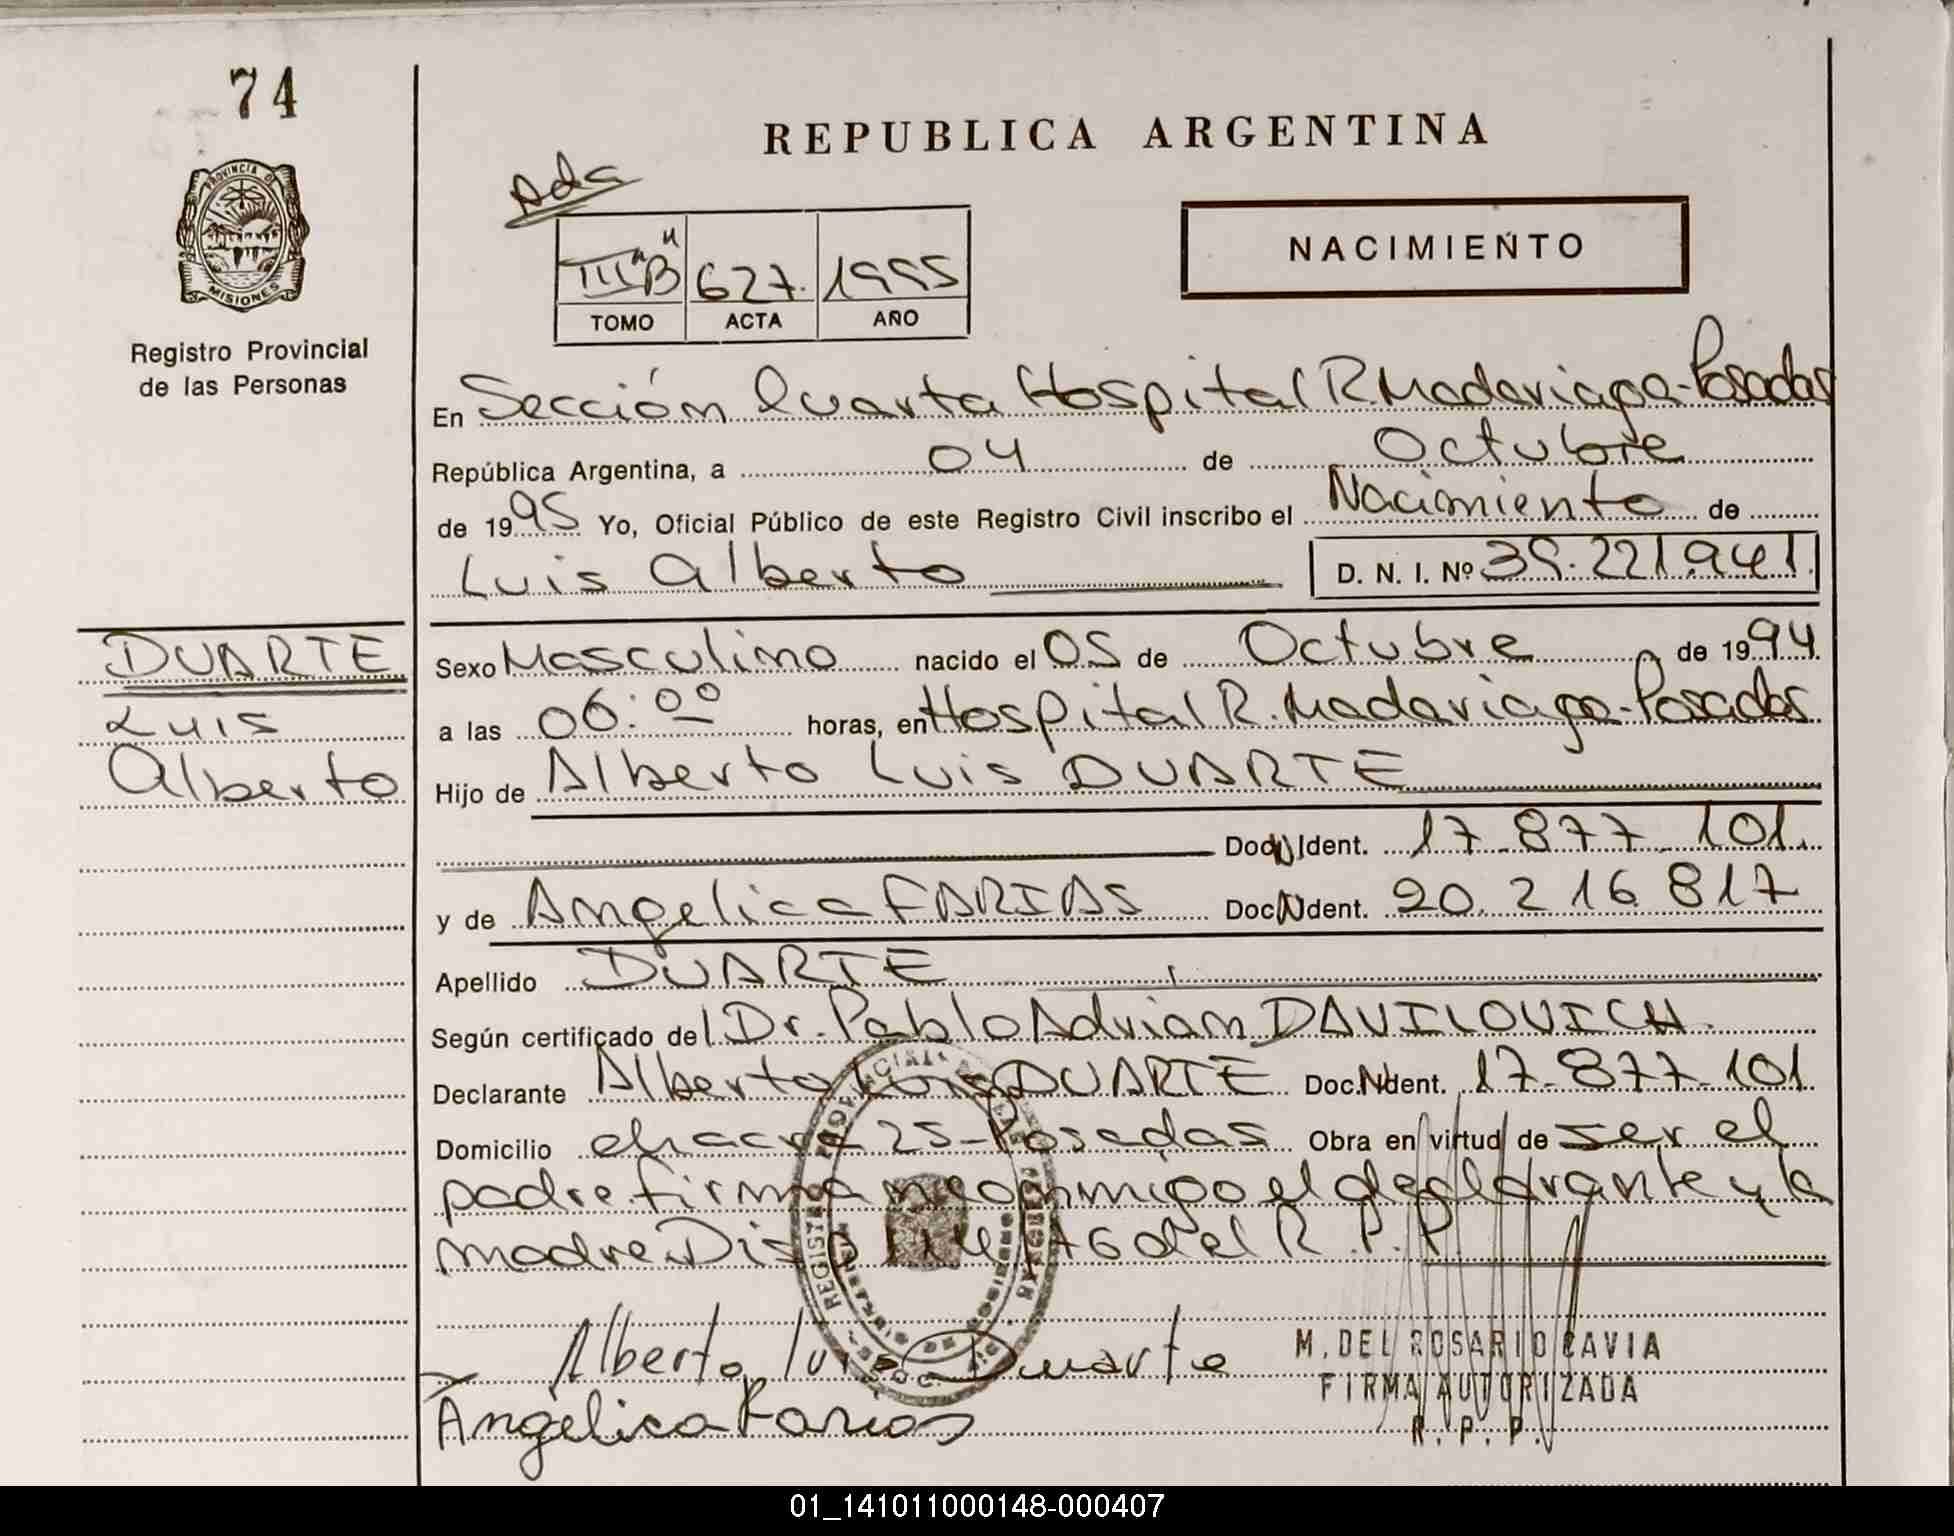 74
REPUBLICA ARGENTINA
PROVINCIA DE
MISIONES
Registro Provincial
de las Personas
Ads
III "B" 627. 1995
TOMO ACTA AÑO
NACIMIENTO
En Sección Cuarta Hospital R Madariaga - Posadas
República Argentina, a 04 de Octubre
de 1995 Yo, Oficial Público de este Registro Civil inscribo el Nacimiento de
Luis Alberto D. N. I. Nº 39.221.941.
DUARTE
Luis
Alberto
Sexo Masculino nacido el 05 de Octubre de 1994
a las 06:00 horas, en Hospital R. Madariaga - Posadas
Hijo de Alberto Luis DUARTE
Doc. N Ident. 17.877.101.
y de Angelica FARIAS Doc. N Ident. 20.216.817
Apellido DUARTE
Según certificado del Dr. Pablo Adrian DAVILOVICH.
Declarante Alberto Luis DUARTE Doc. N Ident. 17-877-101
Domicilio chacra 25 - Posadas Obra en virtud de ser el
padre firman conmigo el declarante y la
madre Disp 114/76 del R.P.P.
Alberto Luis Duarte
Angélica Farias
M. DEL ROSARIO CAVIA
FIRMA AUTORIZADA
R. P. P.
01_141011000148-000407